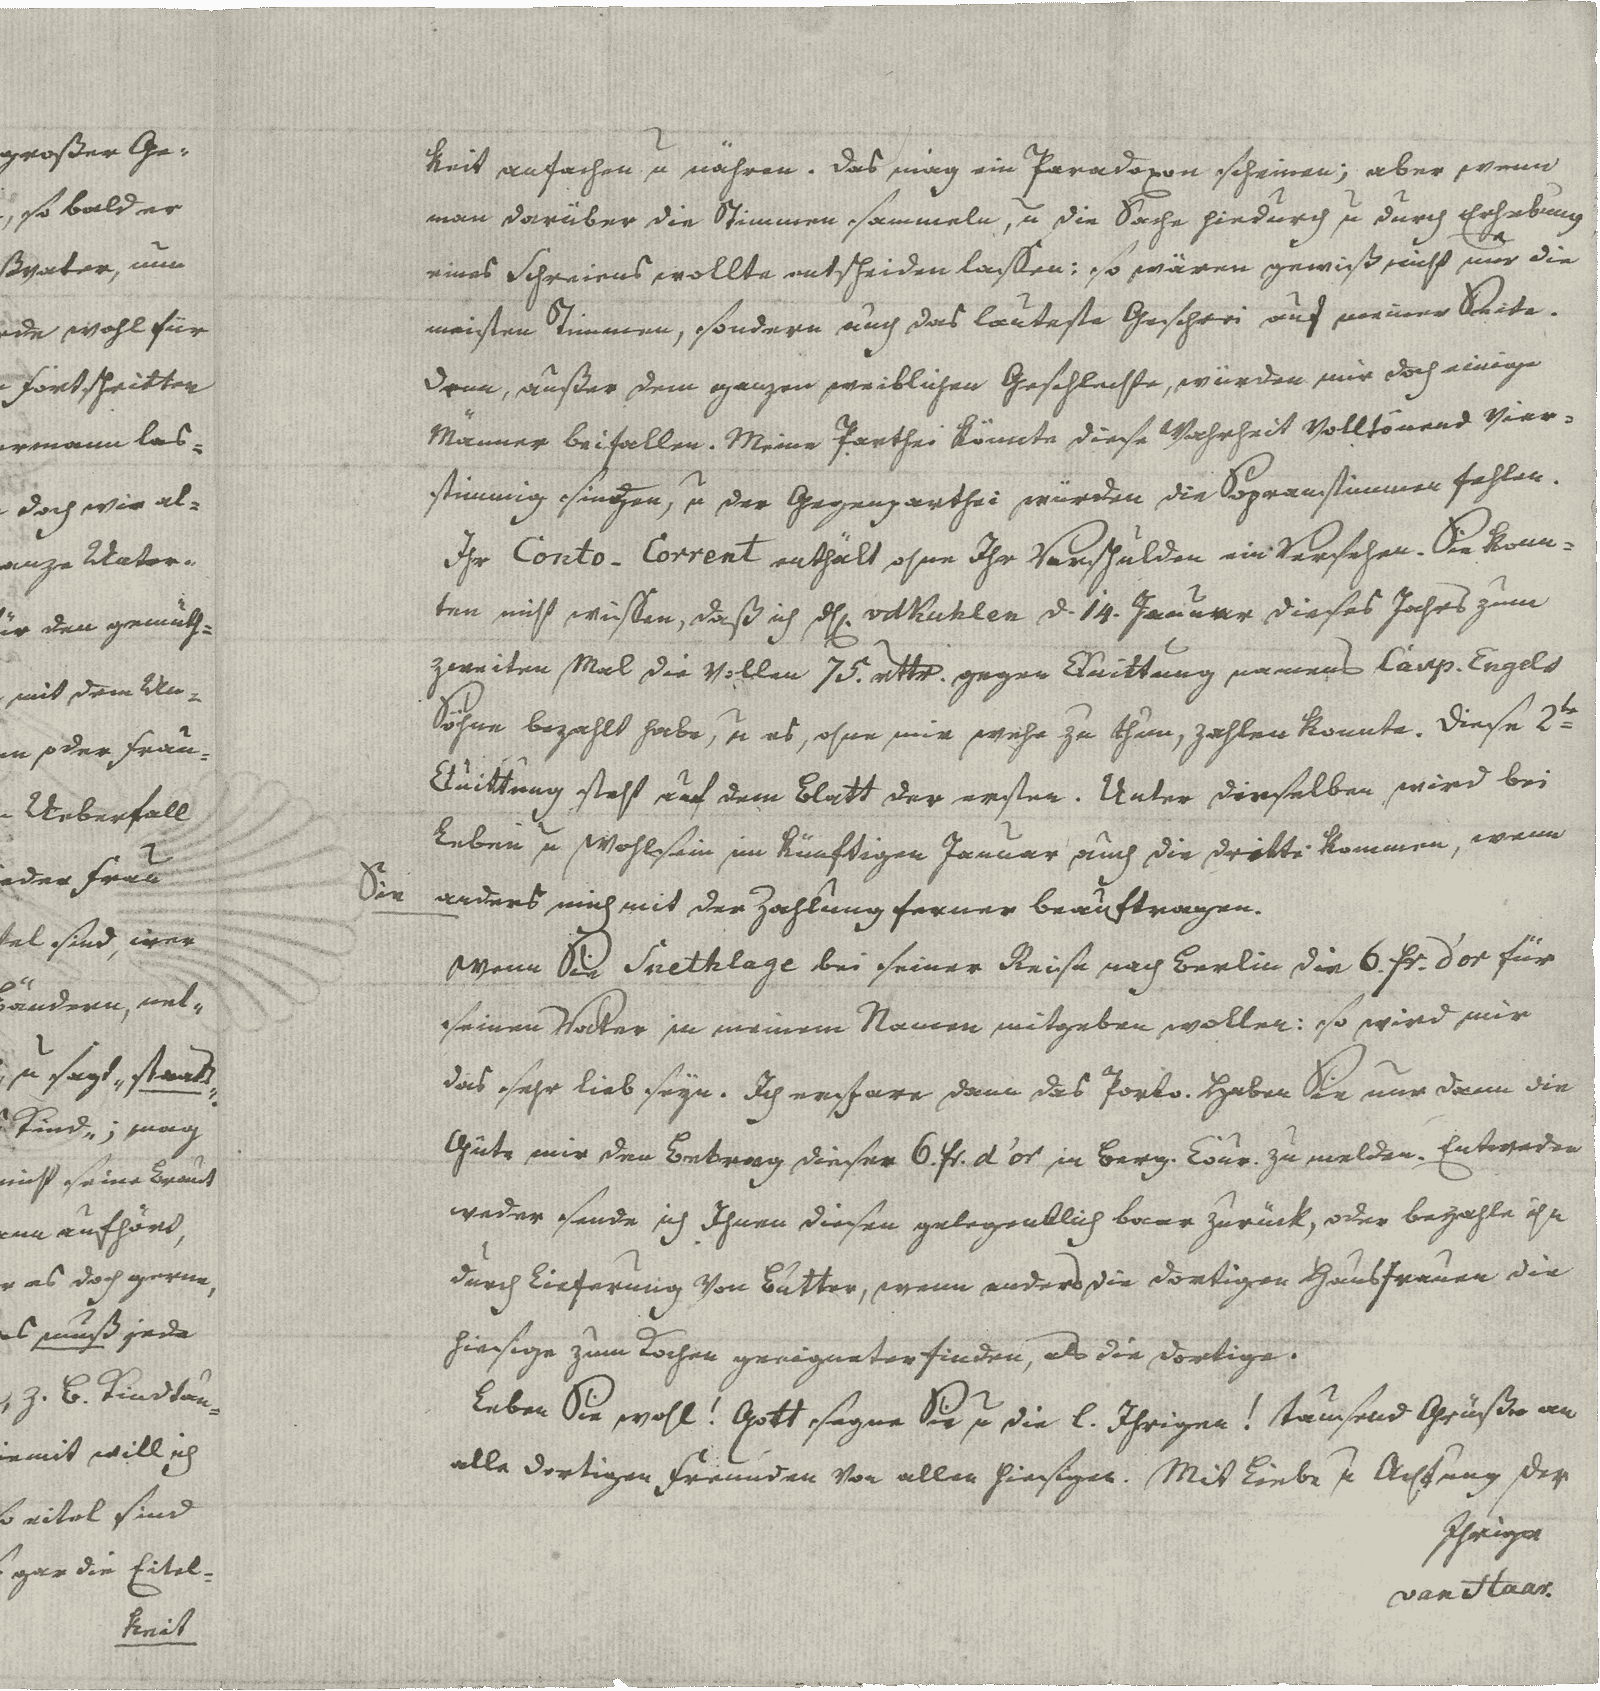 großer Ge-
, so bald er
ßvater, nun
wohl für
Fortschritten
ermann las-
doch wir al-
anze Unter-
ür den gemüth-
mit dem Un-
oder Frau-
Ueberfall
eder Frau
tel sind, wer
Bändern, net-
u sagt „staats-
Kind„; mag
nicht seine Braut
ann aufhört,
es doch gerne,
es muß jede
z. B. Kindtau-
iemit will ich
so eitel sind
gar die Eitel-
keit
keit anfachen u nähren. Das mag ein Paradoxon scheinen; aber wenn
man darüber die Stimmen sammeln, u die Sache hiedurch u durch Erhebung
eines Schreiens wollte entscheiden lassen: so wären gewiß nicht nur die
meisten Stimmen, sondern auch das lauteste Geschrei auf meiner Seite.
Denn, außer dem ganzen weiblichen Geschlechte, würden mir doch einige
Männer beifallen. Meine Parthei könnte diese Wahrheit volltönend vier-
stimmig singen, u der Gegenparthei würden die Sopranstimmen fehlen.
Ihr Conto-Corrent enthält ohne Ihr Verschulden ein Versehen. Sie konn-
ten nicht wissen, daß ich vdKuhlen d. 14. Januar dieses Jahrs zum
zweiten Mal die vollen 75. rttr. gegen Quittung namens Casp. Engels
Söhne bezahlt habe, u es, ohne mir wehe zu thun, zahlen konnte. Diese 2te
Quittung steht auf dem Blatt der ersten. Unter derselben wird bei
Leben u Wohlsein im künftigen Januar auch die dritte kommen, wenn
Sie anders mich mit der Zahlung ferner beauftragen.
Wenn Sie Snethlage bei seiner Reise nach Berlin die 6. fr. d'or für
seinen Vater in meinem Namen mitgeben wollen: so wird mir
das sehr lieb seyn. Ich erspare dann das Porto. Haben Sie nur dann die
Güte mir den Betrag dieser 6. fr. d'or in Berg. Cour. zu melden. Entweder
weder sende ich Ihnen diesen gelegentlich baar zurück, oder bezahle ihn
durch Lieferung von Butter, wenn anders die dortigen Hausfrauen die
hiesige zum Kochen geeigneter finden, als die dortige.
Leben Sie wohl! Gott segne Sie u die l. Ihrigen! Tausend Grüße an
alle dortigen Freunden von allen hiesigen. Mit Liebe u Achtung der
Ihrige
van Haar.